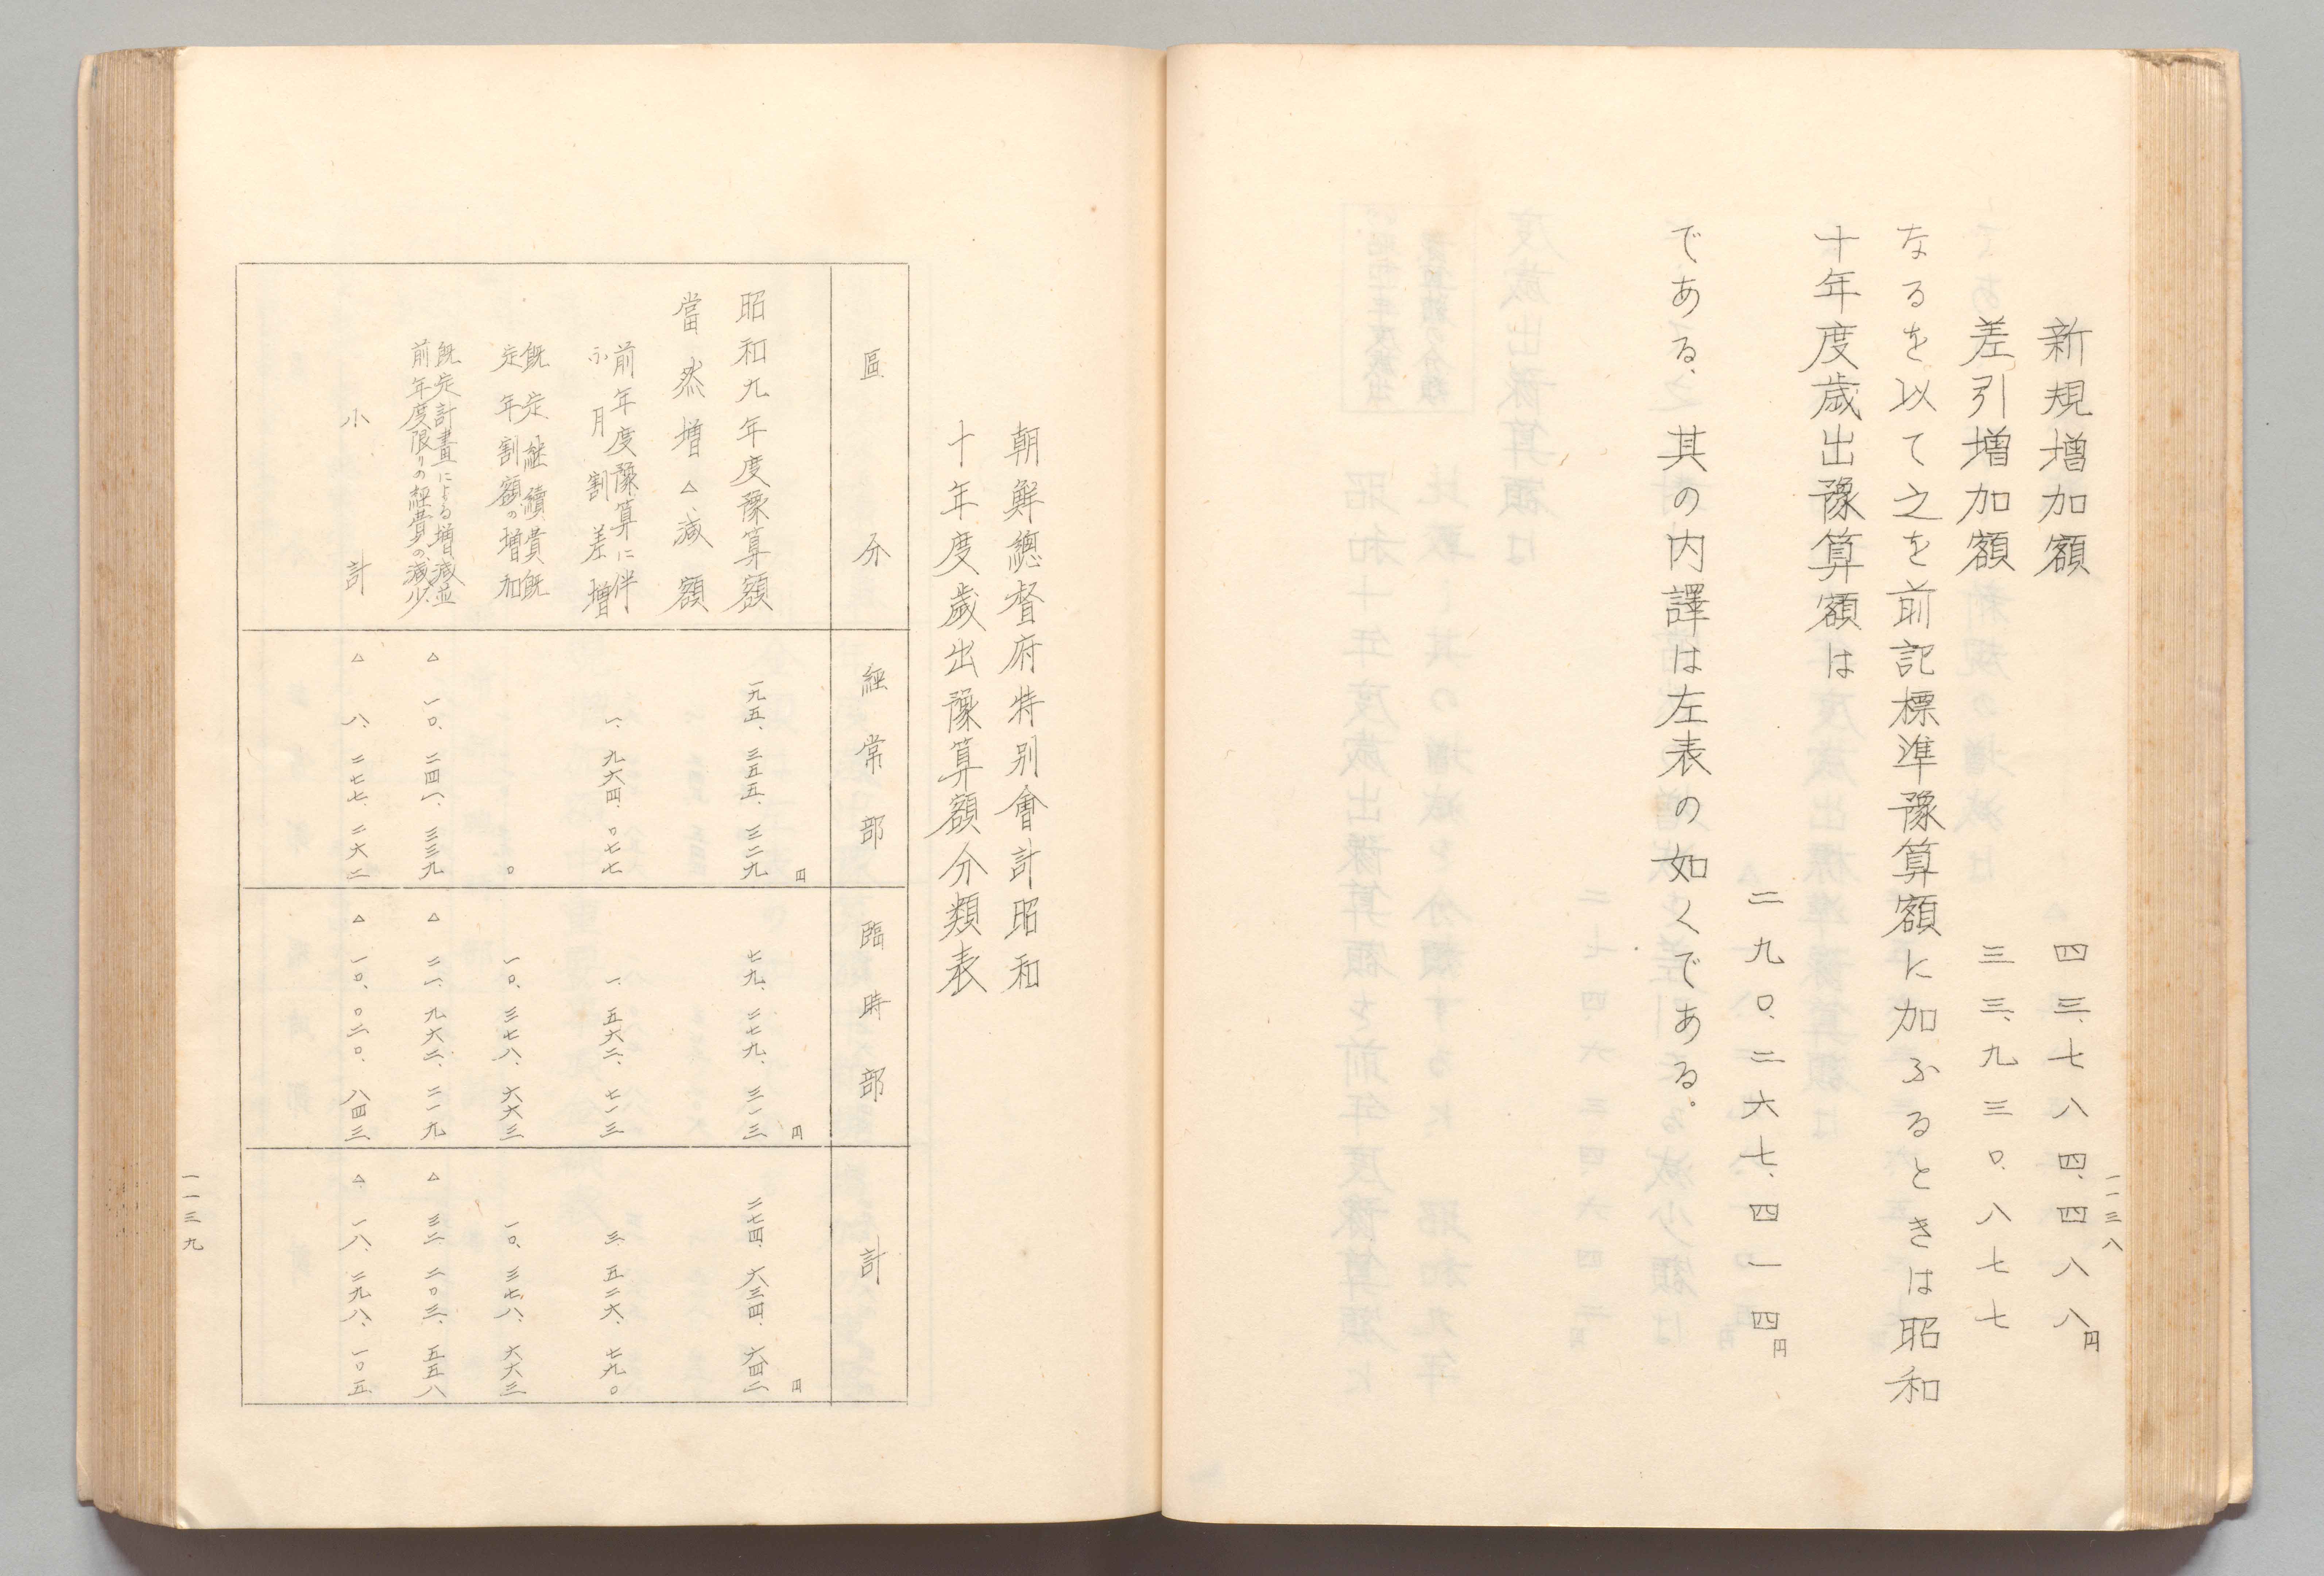 一一三八
新規増加額 四三、七八四、四八八円
差引増加額 三三、九三〇、八七七
なるを以て之を前記標準豫算額に加ふるときは昭和
十年度歳出豫算額は
二九〇、二六七、四一四円
である、其の内譯は左表の如くである。
朝鮮總督府特別會計昭和
十年度歳出豫算額分類表
區分 經常部 臨時部 計
円 円 円
昭和九年度豫算額 一九五、三五五、三二九 七九、二七九、三一三 二七四、六三四、六四二
當然増△減額
前年度豫算に伴
ふ月割差増 一、九六四、〇七七 一、五六二、七一三 三、五二六、七九〇
既定継續費既
定年割額の増加 〇 一〇、三七八、六六三 一〇、三七八、六六三
既定計畫による増減並
前年度限りの経費の減少 △一〇、二四一、三三九 △二一、九六二、二一九 △三二、二〇三、五五八
小計 △八、二七七、二六二 △一〇、〇二〇、八四三 △一八、二九八、一〇五
一一三九